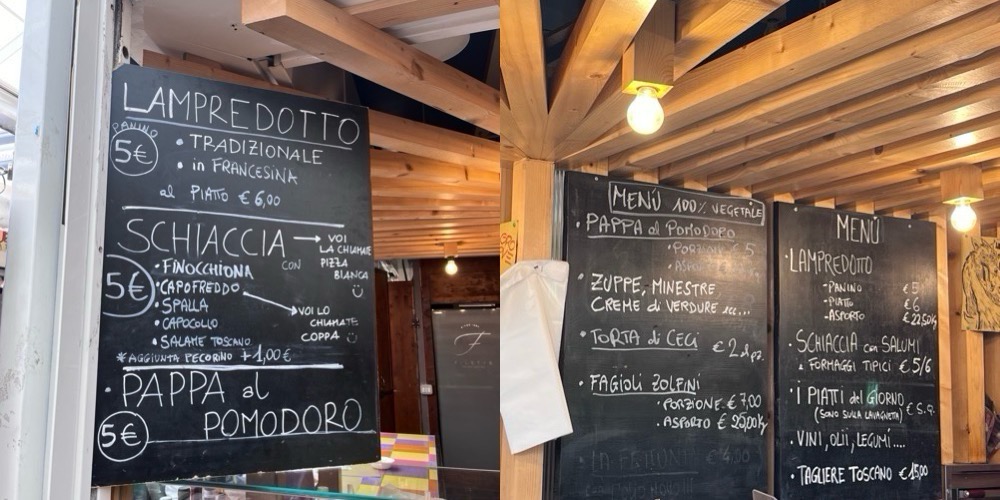 LAMPREDOTTO
PANINO
5€
• TRADIZIONALE
• in FRANCESINA
al PIATTO €6,00
SCHIACCIA → VOI
LA CHIAMATE
CON PIZZA
BIANCA
5€
• FINOCCHIONA
• CAPOFREDDO
• SPALLA → VOI LO
• CAPOCOLLO CHIAMATE
COPPA
• SALAME TOSCANO
*AGGIUNTA PECORINO +1,00€
• PAPPA al
POMODORO
5€
MENÚ 100% VEGETALE
• PAPPA al POMODORO
• PORZIONE € 5
• ASPORTO
• ZUPPE, MINESTRE
CREME di VERDURE ecc...
• TORTA di CECI € 2 al pz.
• FAGIOLI ZOLFINI
• PORZIONE € 7,00
• ASPORTO € 20,00 Kg
MENÚ
• LAMPREDOTTO
- PANINO € 5
- PIATTO € 6
- ASPORTO € 22,50 Kg
• SCHIACCIA con SALUMI
& FORMAGGI TIPICI € 5/6
• I PIATTI del GIORNO
(SONO SULLA LAVAGNETTA) € S.Q.
• VINI, OLII, LEGUMI....
• TAGLIERE TOSCANO € 15,00